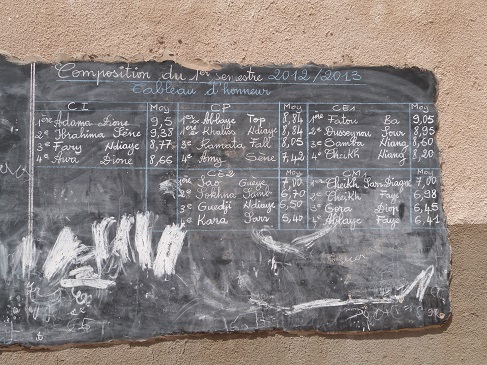 Composition du 1er semestre 2012/2013
Tableau d'honneur
C.I Moy
1ère Adama Dione 9,5
2e Ibrahima Sène 9,38
3e Fary Ndiaye 8,77
4e Awa Dione 8,66
CP Moy
1er Ablaye Top 8,84
1ère Khaliss Ndiaye 8,84
3e Ramata Fall 8,05
4e Amy Sène 7,42
CE1 Moy
1ère Fatou Ba 9,05
2e Ousseynou Sarr 8,95
3e Samba Niang 8,60
4e Cheikh Niang 8,20
CE2
1ère Sao Gueye 7,00
2e Sokhna Samb 6,70
3e Guedji Ndiaye 6,50
4e Kara Sarr 5,40
CM1
1er Cheikh Sarr Diagne 7,00
2e Cheikh Faye 6,98
3e Gora Diop 6,45
4e Ablaye Faye 6,41